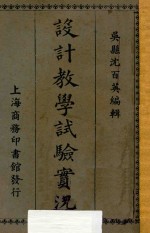 吳縣沈百英編輯
設計教學試驗實況
上海商務印書館發行